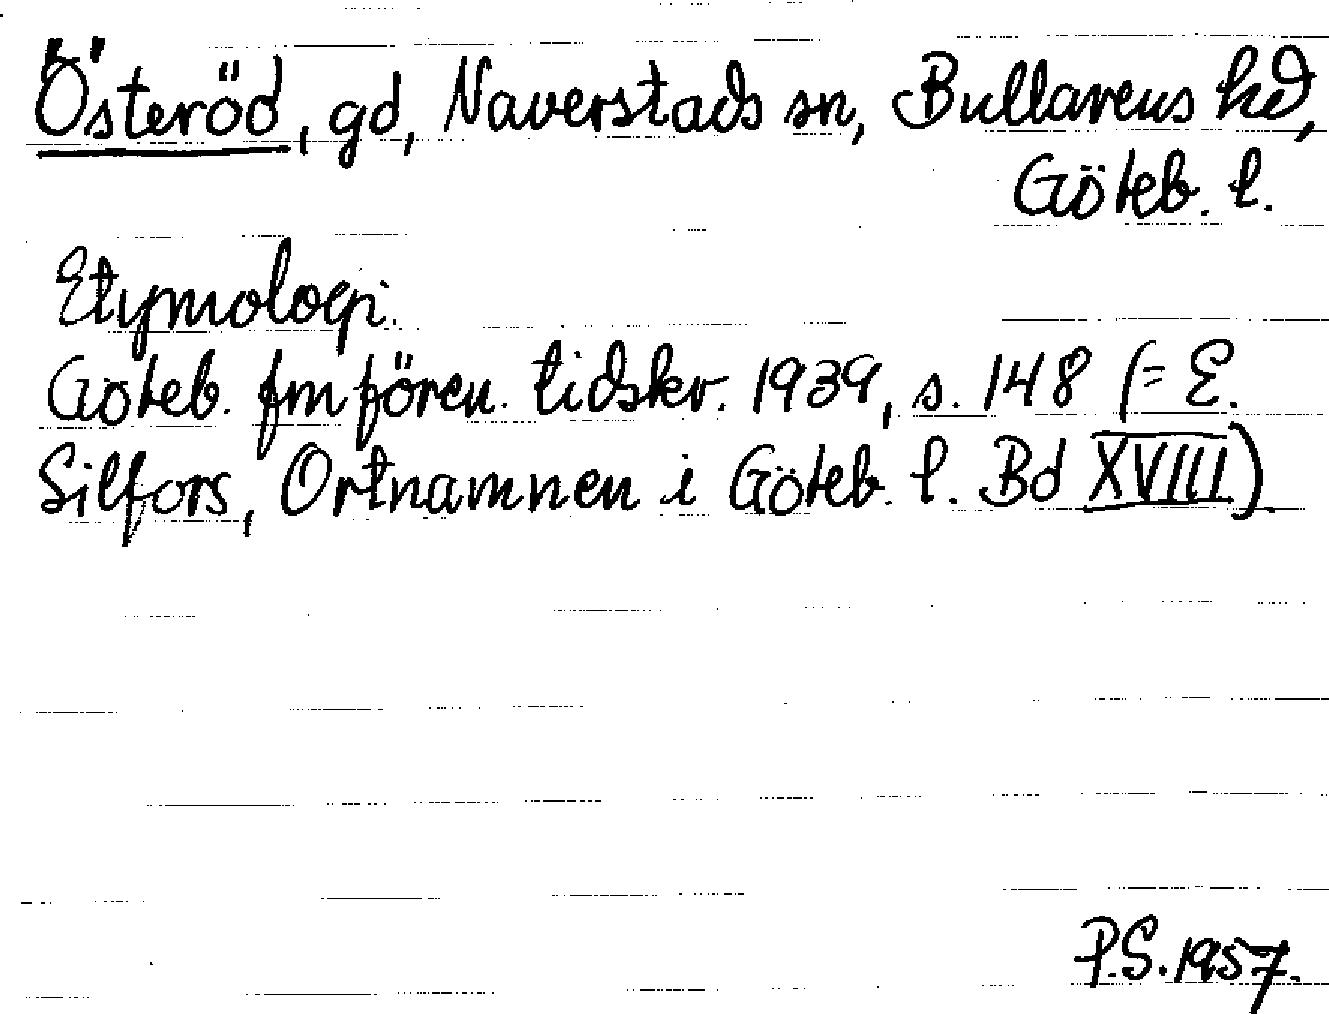 Österöd, gd, Naverstads sn, Bullarens hd,
Göteb. l.
Etymologi.
Göteb. fmfören. tidskr. 1939, s. 148 (= E.
Silfors, Ortnamnen i Göteb. l. Bd XVIII).
P.S. 1957.